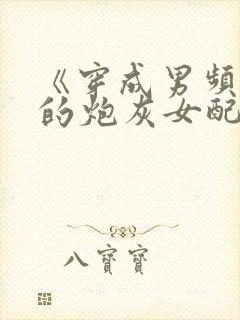 《穿成男頻
的炮灰女配
八寶寶